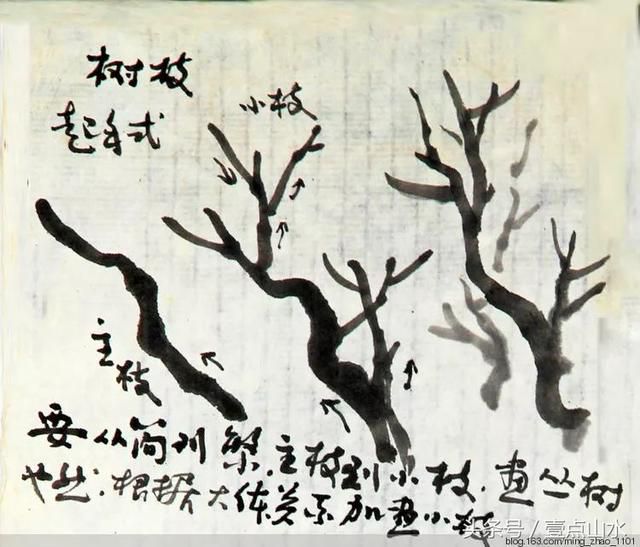 树枝
起手式
小枝
主枝
要从简到繁.主枝到小枝.画丛树
也然.根据大体关系加画小树
头条号／壹点山水
blog.163.com/ming_zhao_1101